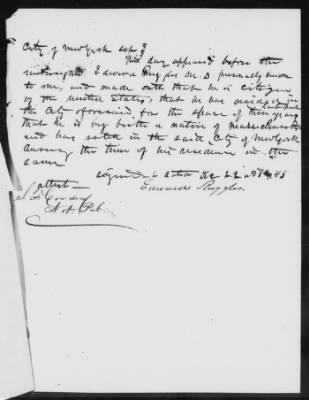 City of New York ss
This day appeared before the
undersigned Edward Ruggles M.D personally known
to me, and made oath that he is citizen
of the United States, that he has resided in
the City aforesaid for the space of three years
that he is by birth a native of Massachusetts
and has voted in the said City of New York
during the time of his residence in the
same
signed & Dec 22
Edward Ruggles
attest
Not. Pub.